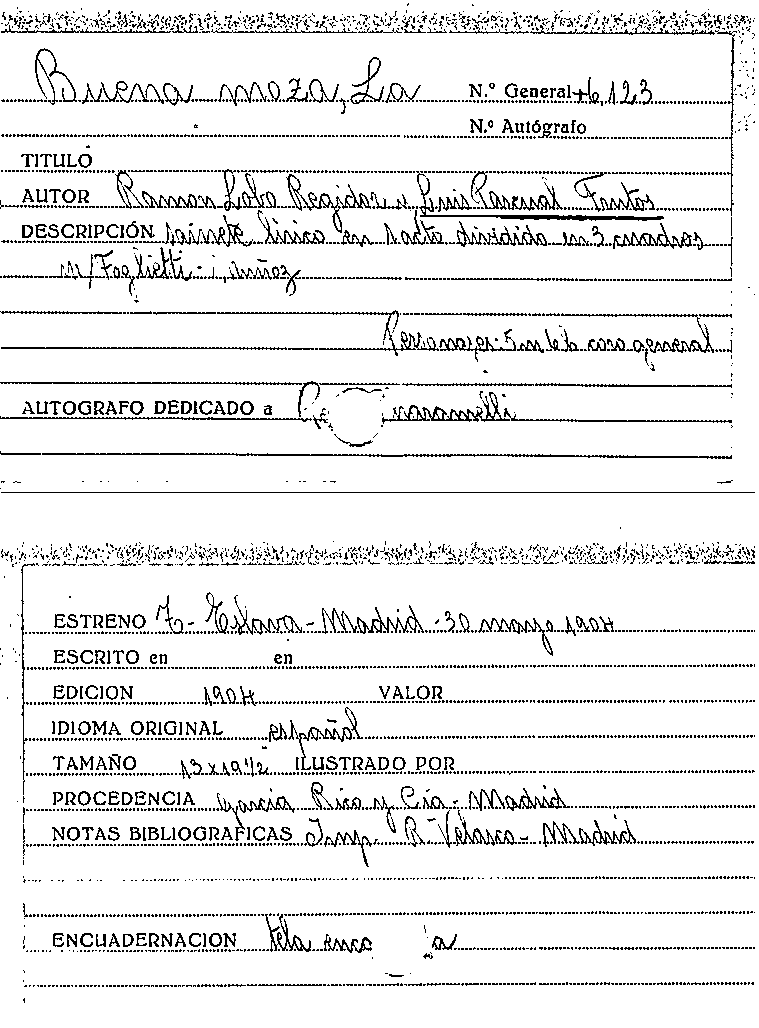 Buena moza, La N.º General 46,123
N.º Autógrafo
TITULO
AUTOR Ramon Lobo Regidor y Luis Pascual Frutos
DESCRIPCIÓN sainete lirico en 1 acto dividido en 3 cuadros
m/ Foglietti
Personages: 5 m 6 h coro general
AUTOGRAFO DEDICADO a
ESTRENO T- Eslava - Madrid - 30 marzo 1904
ESCRITO en en
EDICION 1904 VALOR
IDIOMA ORIGINAL español
TAMAÑO 13 x 19 1/2 ILUSTRADO POR
PROCEDENCIA Garcia Rico y Cía - Madrid
NOTAS BIBLIOGRAFICAS Imp. R- Velasco - Madrid
ENCUADERNACION tela